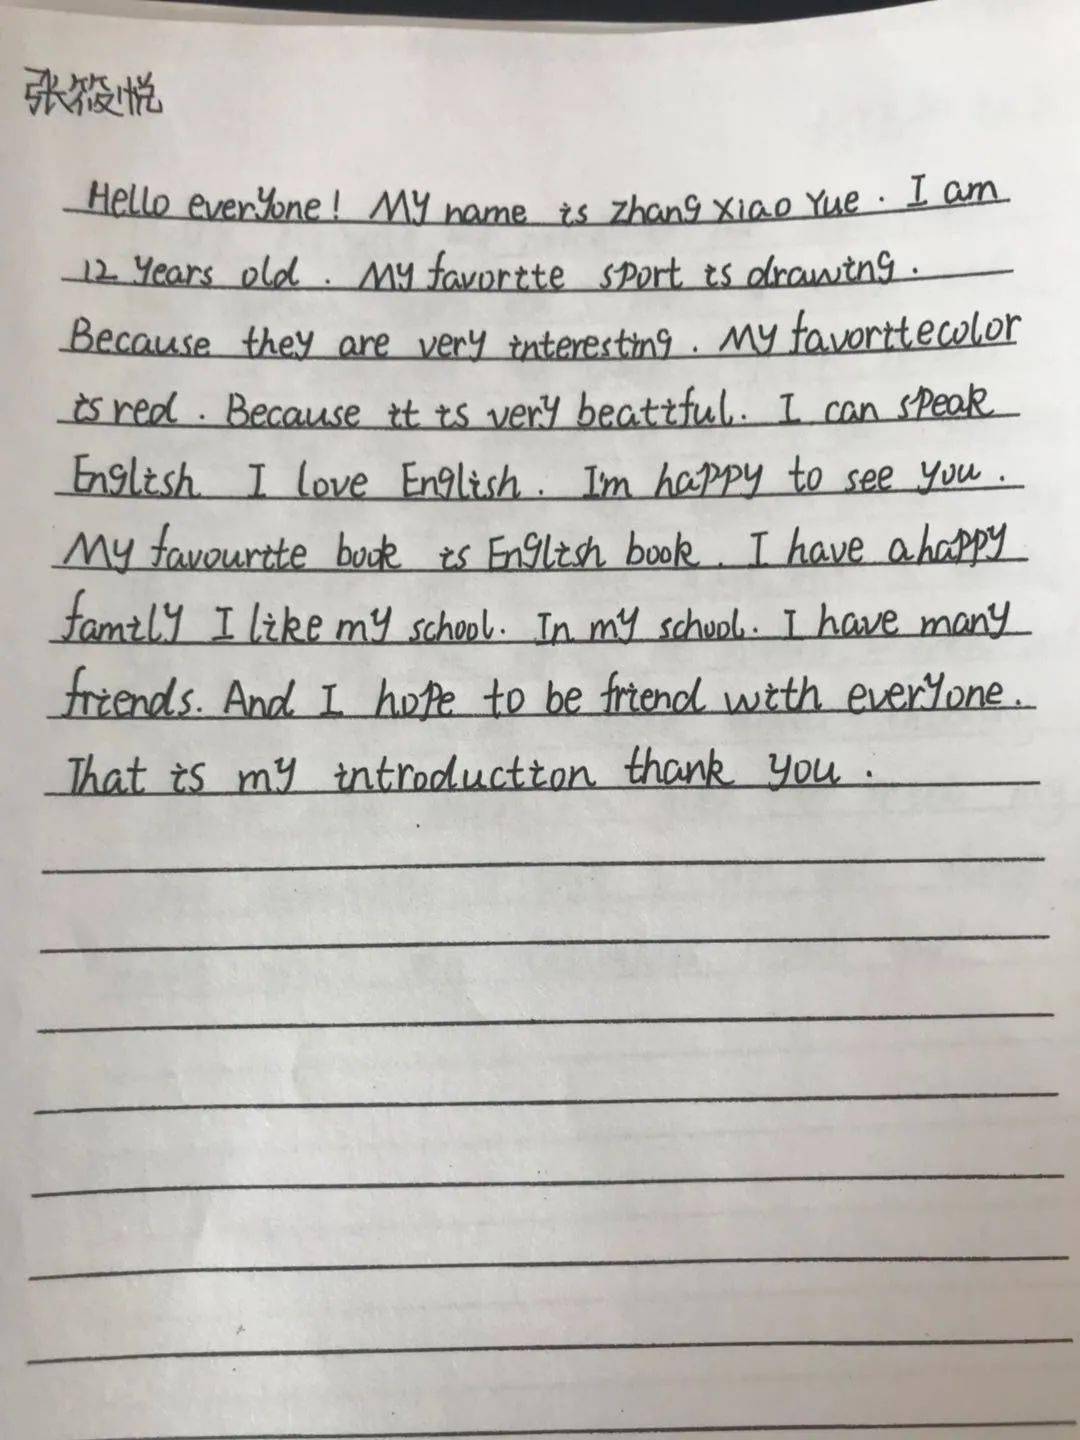 张筱悦
Hello everyone! My name is zhang xiao Yue. I am
12 years old. My favorite sport is drawing.
Because they are very interesting. My favorite color
is red. Because it is very beatiful. I can speak
English I love English. I'm happy to see you.
My favourite book is English book. I have a happy
family I like my school. In my school. I have many
friends. And I hope to be friend with everyone.
That is my introduction thank you.